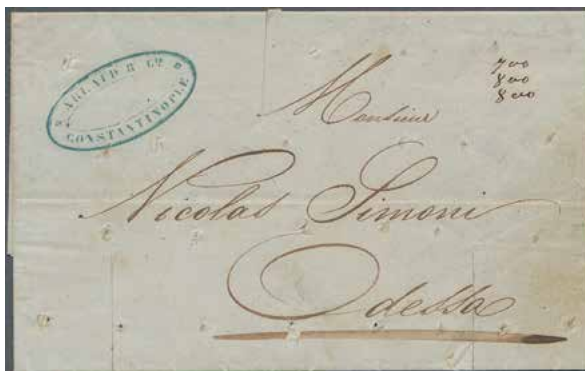 CONSTANTINOPLE
700
800
800
Monsieur
Nicolas Simoni
Odessa